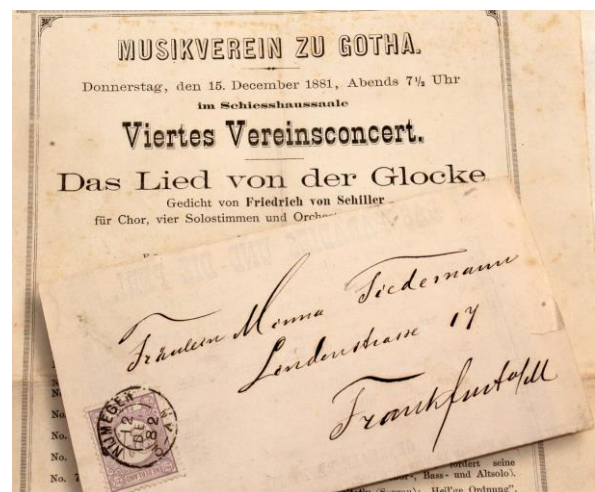 MUSIKVEREIN ZU GOTHA.
Donnerstag, den 15. December 1881, Abends 7½ Uhr
im Schiesshaussaale
Viertes Vereinsconcert.
Das Lied von der Glocke
Gedicht von Friedrich von Schiller
für Chor, vier Solostimmen und
Fräulein Minna Tiedemann
Lindenstrasse 17
Frankfurt a/M
NIJMEGEN
12
82
No.
No.
No.
No. 7
fordert seine
Bass- und Altsolo).
Heil'ge Ordnung",